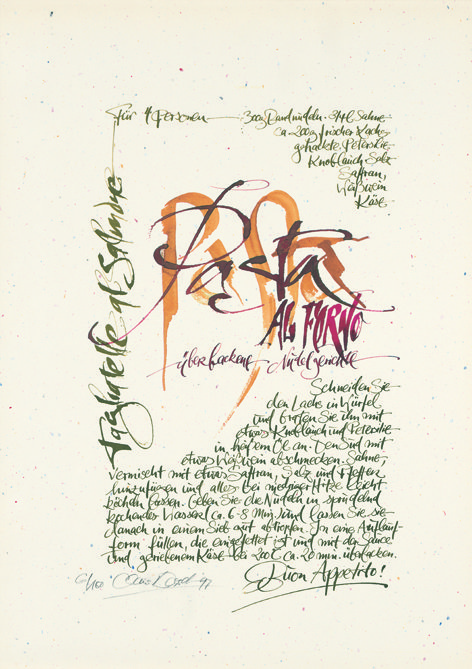 Für 4 Personen
300g Bandnudeln · 3/4 l Sahne
ca. 200g frischer Lachs
gehackte Petersilie
Knoblauch · Salz
Saffran,
Weißwein
Käse
Tagliatelle al Salmone
Pasta
AL FORNO
überbackene Nudelgerichte
Schneiden Sie
den Lachs in Würfel
und braten Sie ihn mit
etwas Knoblauch und Petersilie
in heißem Öl an. Den Sud mit
etwas Weißwein abschmecken. Sahne,
vermischt mit etwas Saffran, Salz und Pfeffer
hinzufügen und alles bei niedriger Hitze leicht
köcheln lassen. Geben Sie die Nudeln in sprudelnd
kochendes Wasser (ca. 6-8 Min.) und lassen Sie sie
danach in einem Sieb gut abtropfen. In eine Auflauf-
form füllen, die eingefettet ist und mit der Sauce
und geriebenem Käse bei 200°C ca. 20 min. überbacken.
Buon Appetito!
97